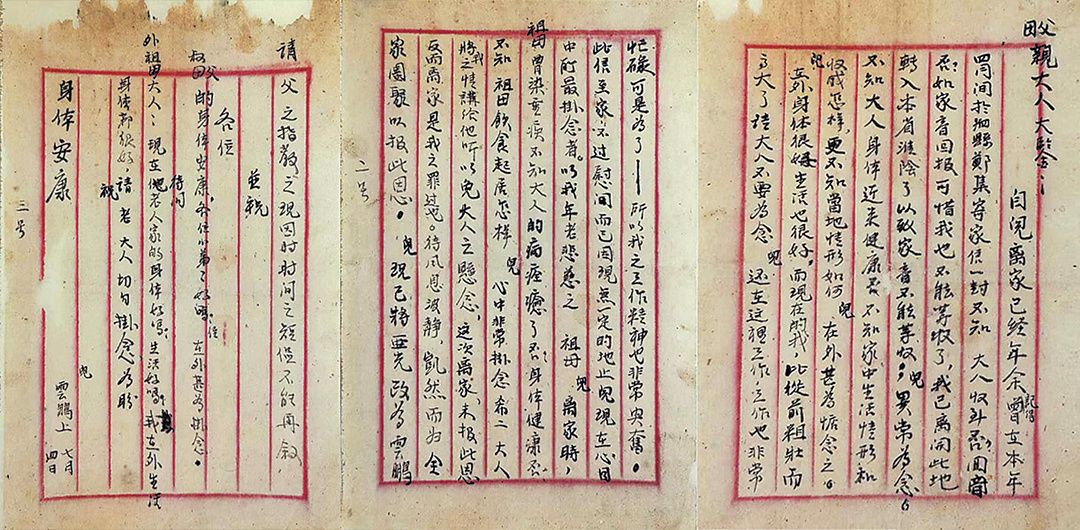 父母親大人大鑒：
自兒离家已經年余曾記得在本年
四月间於沏縣鄭集寄家信一封不知 大人收到否。回音
否如家音回报可惜我也不能等收了，我已离開此地
轉入本省淮陰了以致家音不能等收。兒異常为念。
不知大人身体近来健康否 不知家中生活情形和
收成怎样，更不知當地情形如何 兒在外甚為惦念之。
兒在外身体很好生活也很好。而現在的我，比從前粗壯而
高大了 請大人不要為念 兒还在这裡工作 工作也非常
忙碌可是為了——所以我之工作精神也非常兴奮。
此信至家不过慰问而已因現無一定的地止兒現在心目
中所最掛念者。以我年老悲慈之 祖母兒离家時，
祖母曾染重疾不知大人的病痊癒了否。身体健康否
不知 祖母飲食起居怎样 兒心中非常掛念希二大人
將我之情講给他听以免大人之懸念，这次离家，未报此恩
反而离家是我之罪过也。待風息波静，凱然而归 全
家團聚以报此恩。 兒現已將 政為雲鵬
二号
請父之指教之現因时时间之短促不能再敘
並祝
各位
叔父母的身体安康，各位小弟了好嗎。侄在外甚為掛念。
待问
外祖母大人：現在他老人家的身体好嗎。生活好嗎。我在外生活
身体都很好請老大人切勿掛念為盼
祝
身体安康
兒 雲鵬上 七月四日
三号